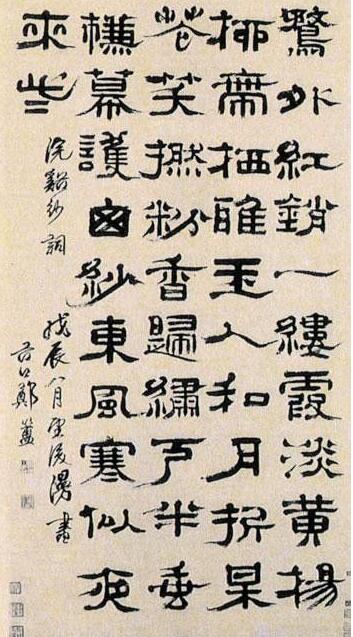 鶩外紅銷一縷霞淡黃楊
柳帶栖雅玉人和月折呆
花笑撚粉香歸繡戶半垂
幕護窗紗東風寒似夜
來些
浣谿紗詞 戊辰八月望後漫書
谷口鄭簠